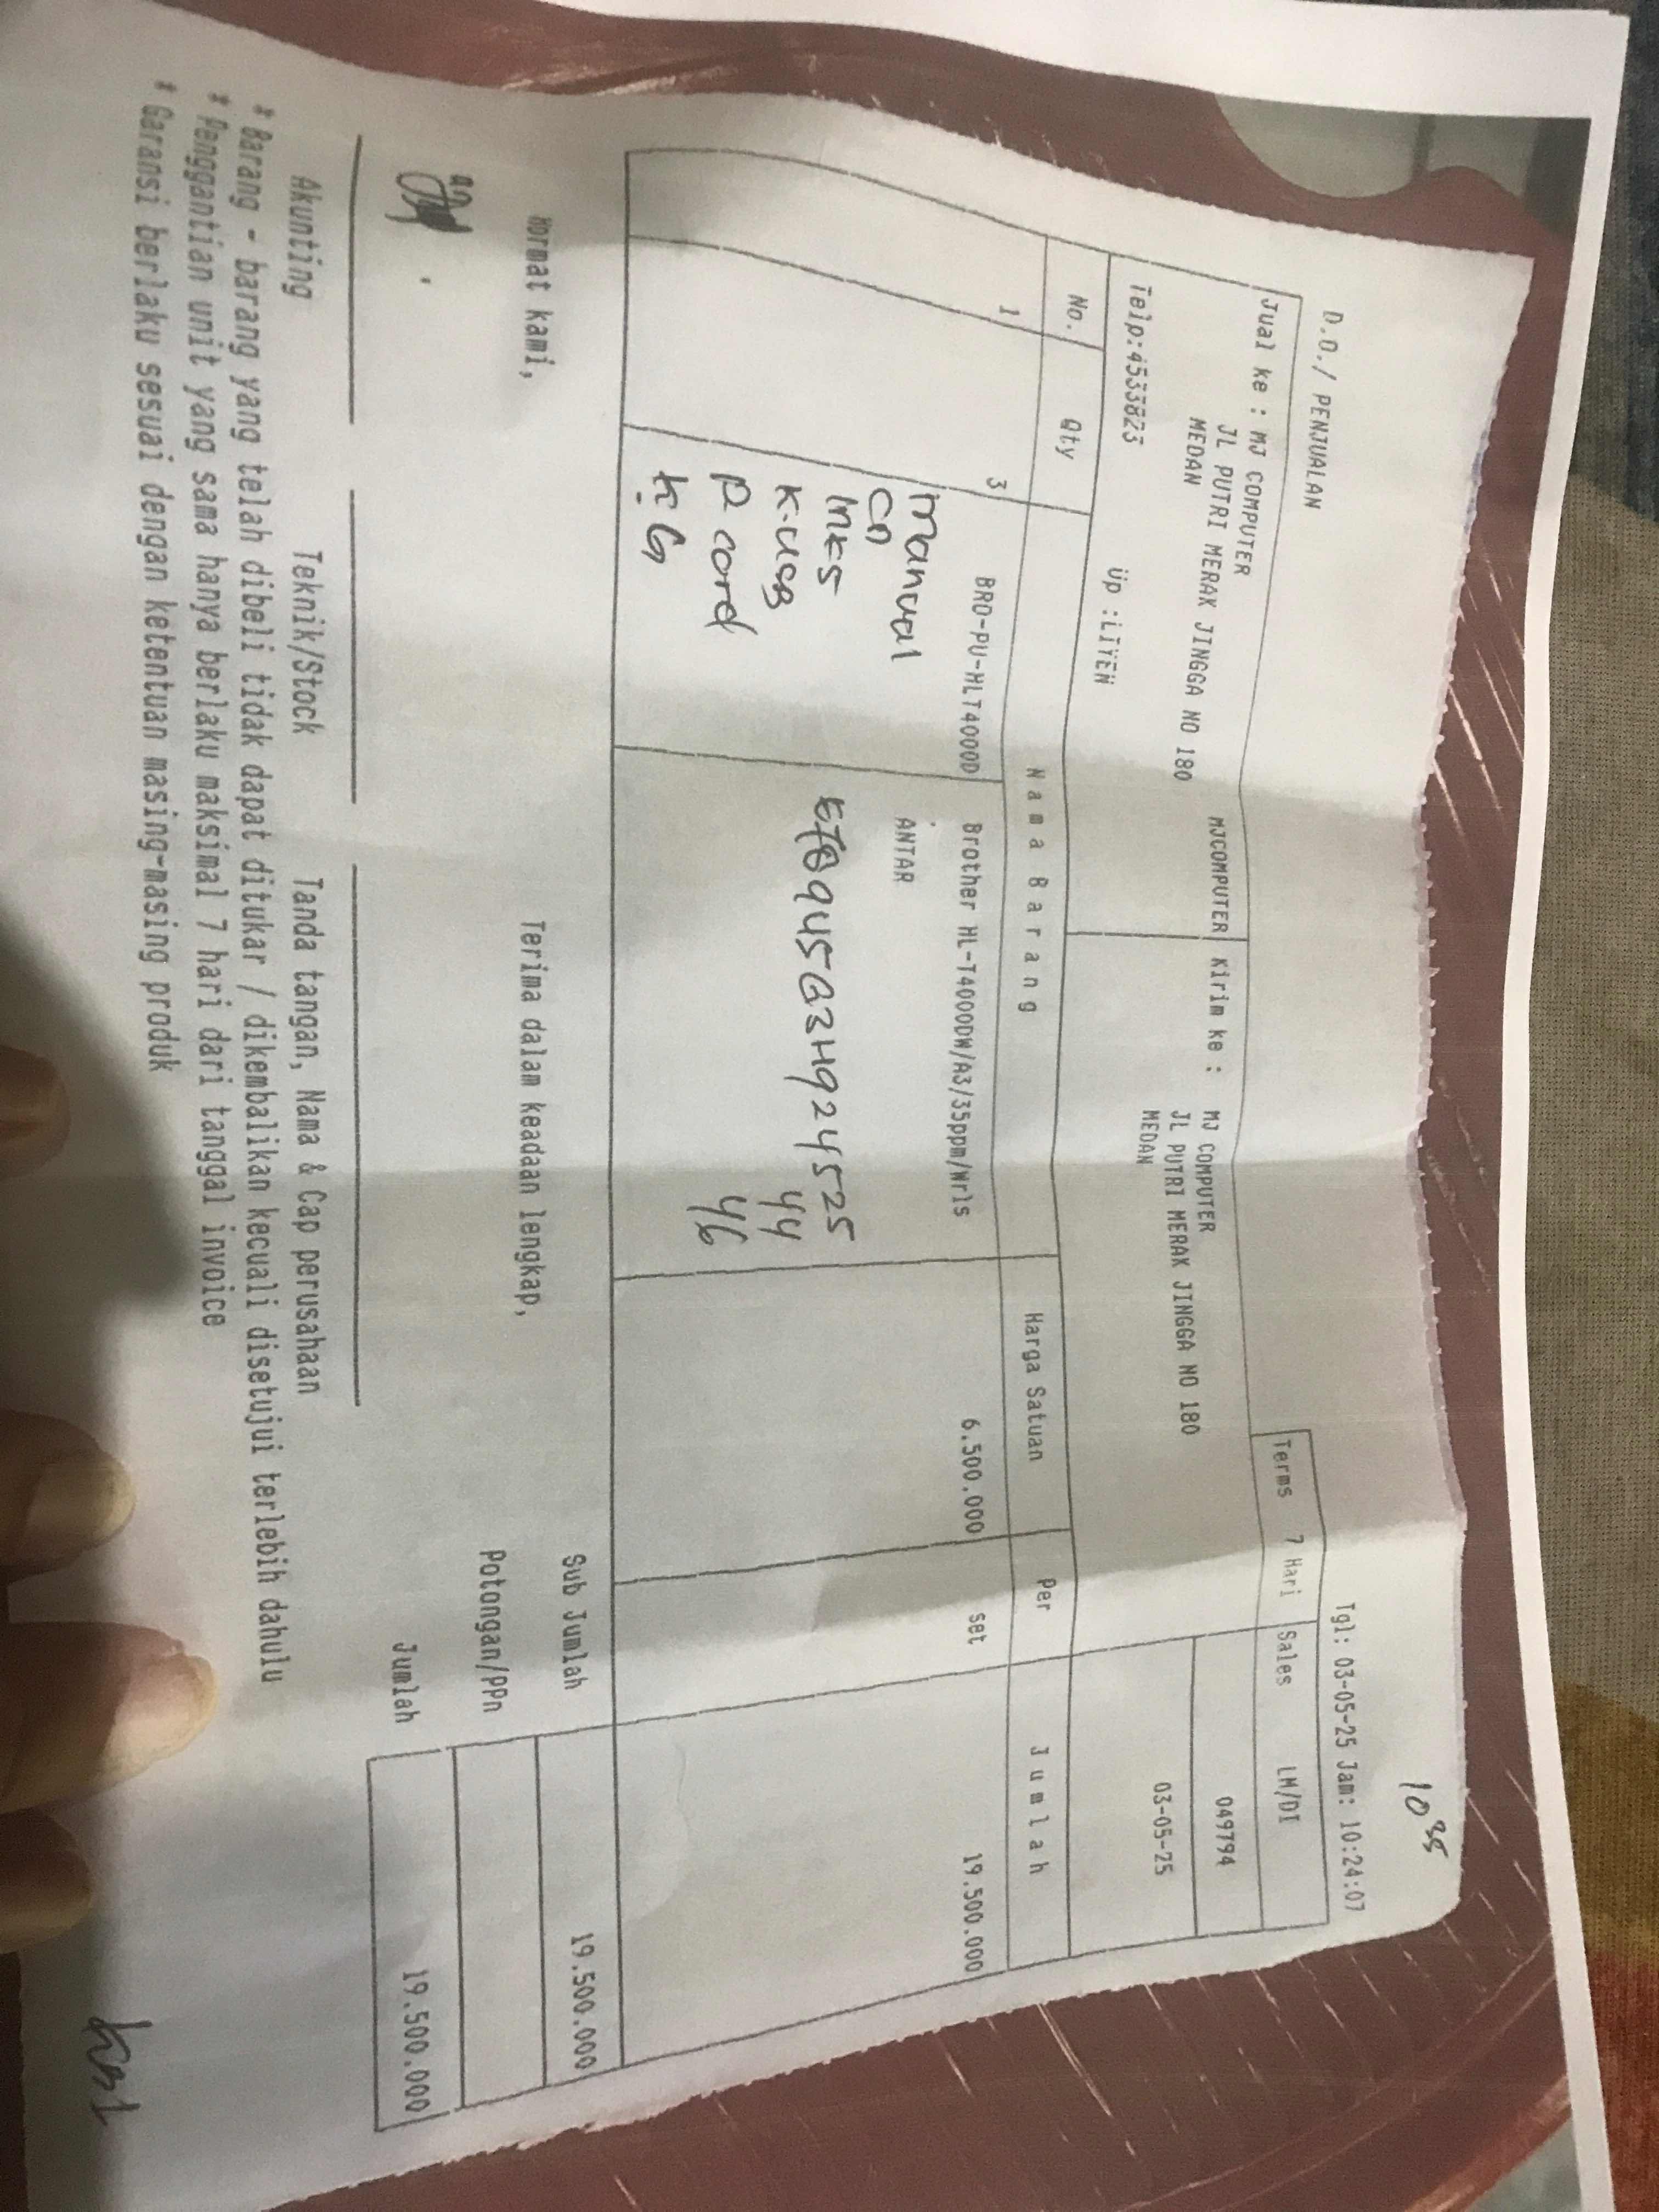 10 35
D.O./ PENJUALAN
Tgl: 03-05-25 Jam: 10:24:07
Jual ke : MJ COMPUTER
JL PUTRI MERAK JINGGA NO 180
MEDAN
Telp:4533823 Up :LIYEN
MJCOMPUTER
Kirim ke : MJ COMPUTER
JL PUTRI MERAK JINGGA NO 180
MEDAN
Terms 7 Hari Sales LM/DI
049794
03-05-25
No. Qty Nama Barang Harga Satuan Per Jumlah
1 3 BRO-PU-HLT4000D Brother HL-T4000DW/A3/35ppm/Wrls 6.500.000 set 19.500.000
ANTAR
manual
CD
Inks
K-USB
P cord
945G3H924525
44
46
Sub Jumlah 19.500.000
Potongan/PPn
Jumlah 19.500.000
Hormat kami,
Terima dalam keadaan lengkap,
Akunting Teknik/Stock Tanda tangan, Nama & Cap perusahaan
* Barang - barang yang telah dibeli tidak dapat ditukar / dikembalikan kecuali disetujui terlebih dahulu
* Penggantian unit yang sama hanya berlaku maksimal 7 hari dari tanggal invoice
* Garansi berlaku sesuai dengan ketentuan masing-masing produk